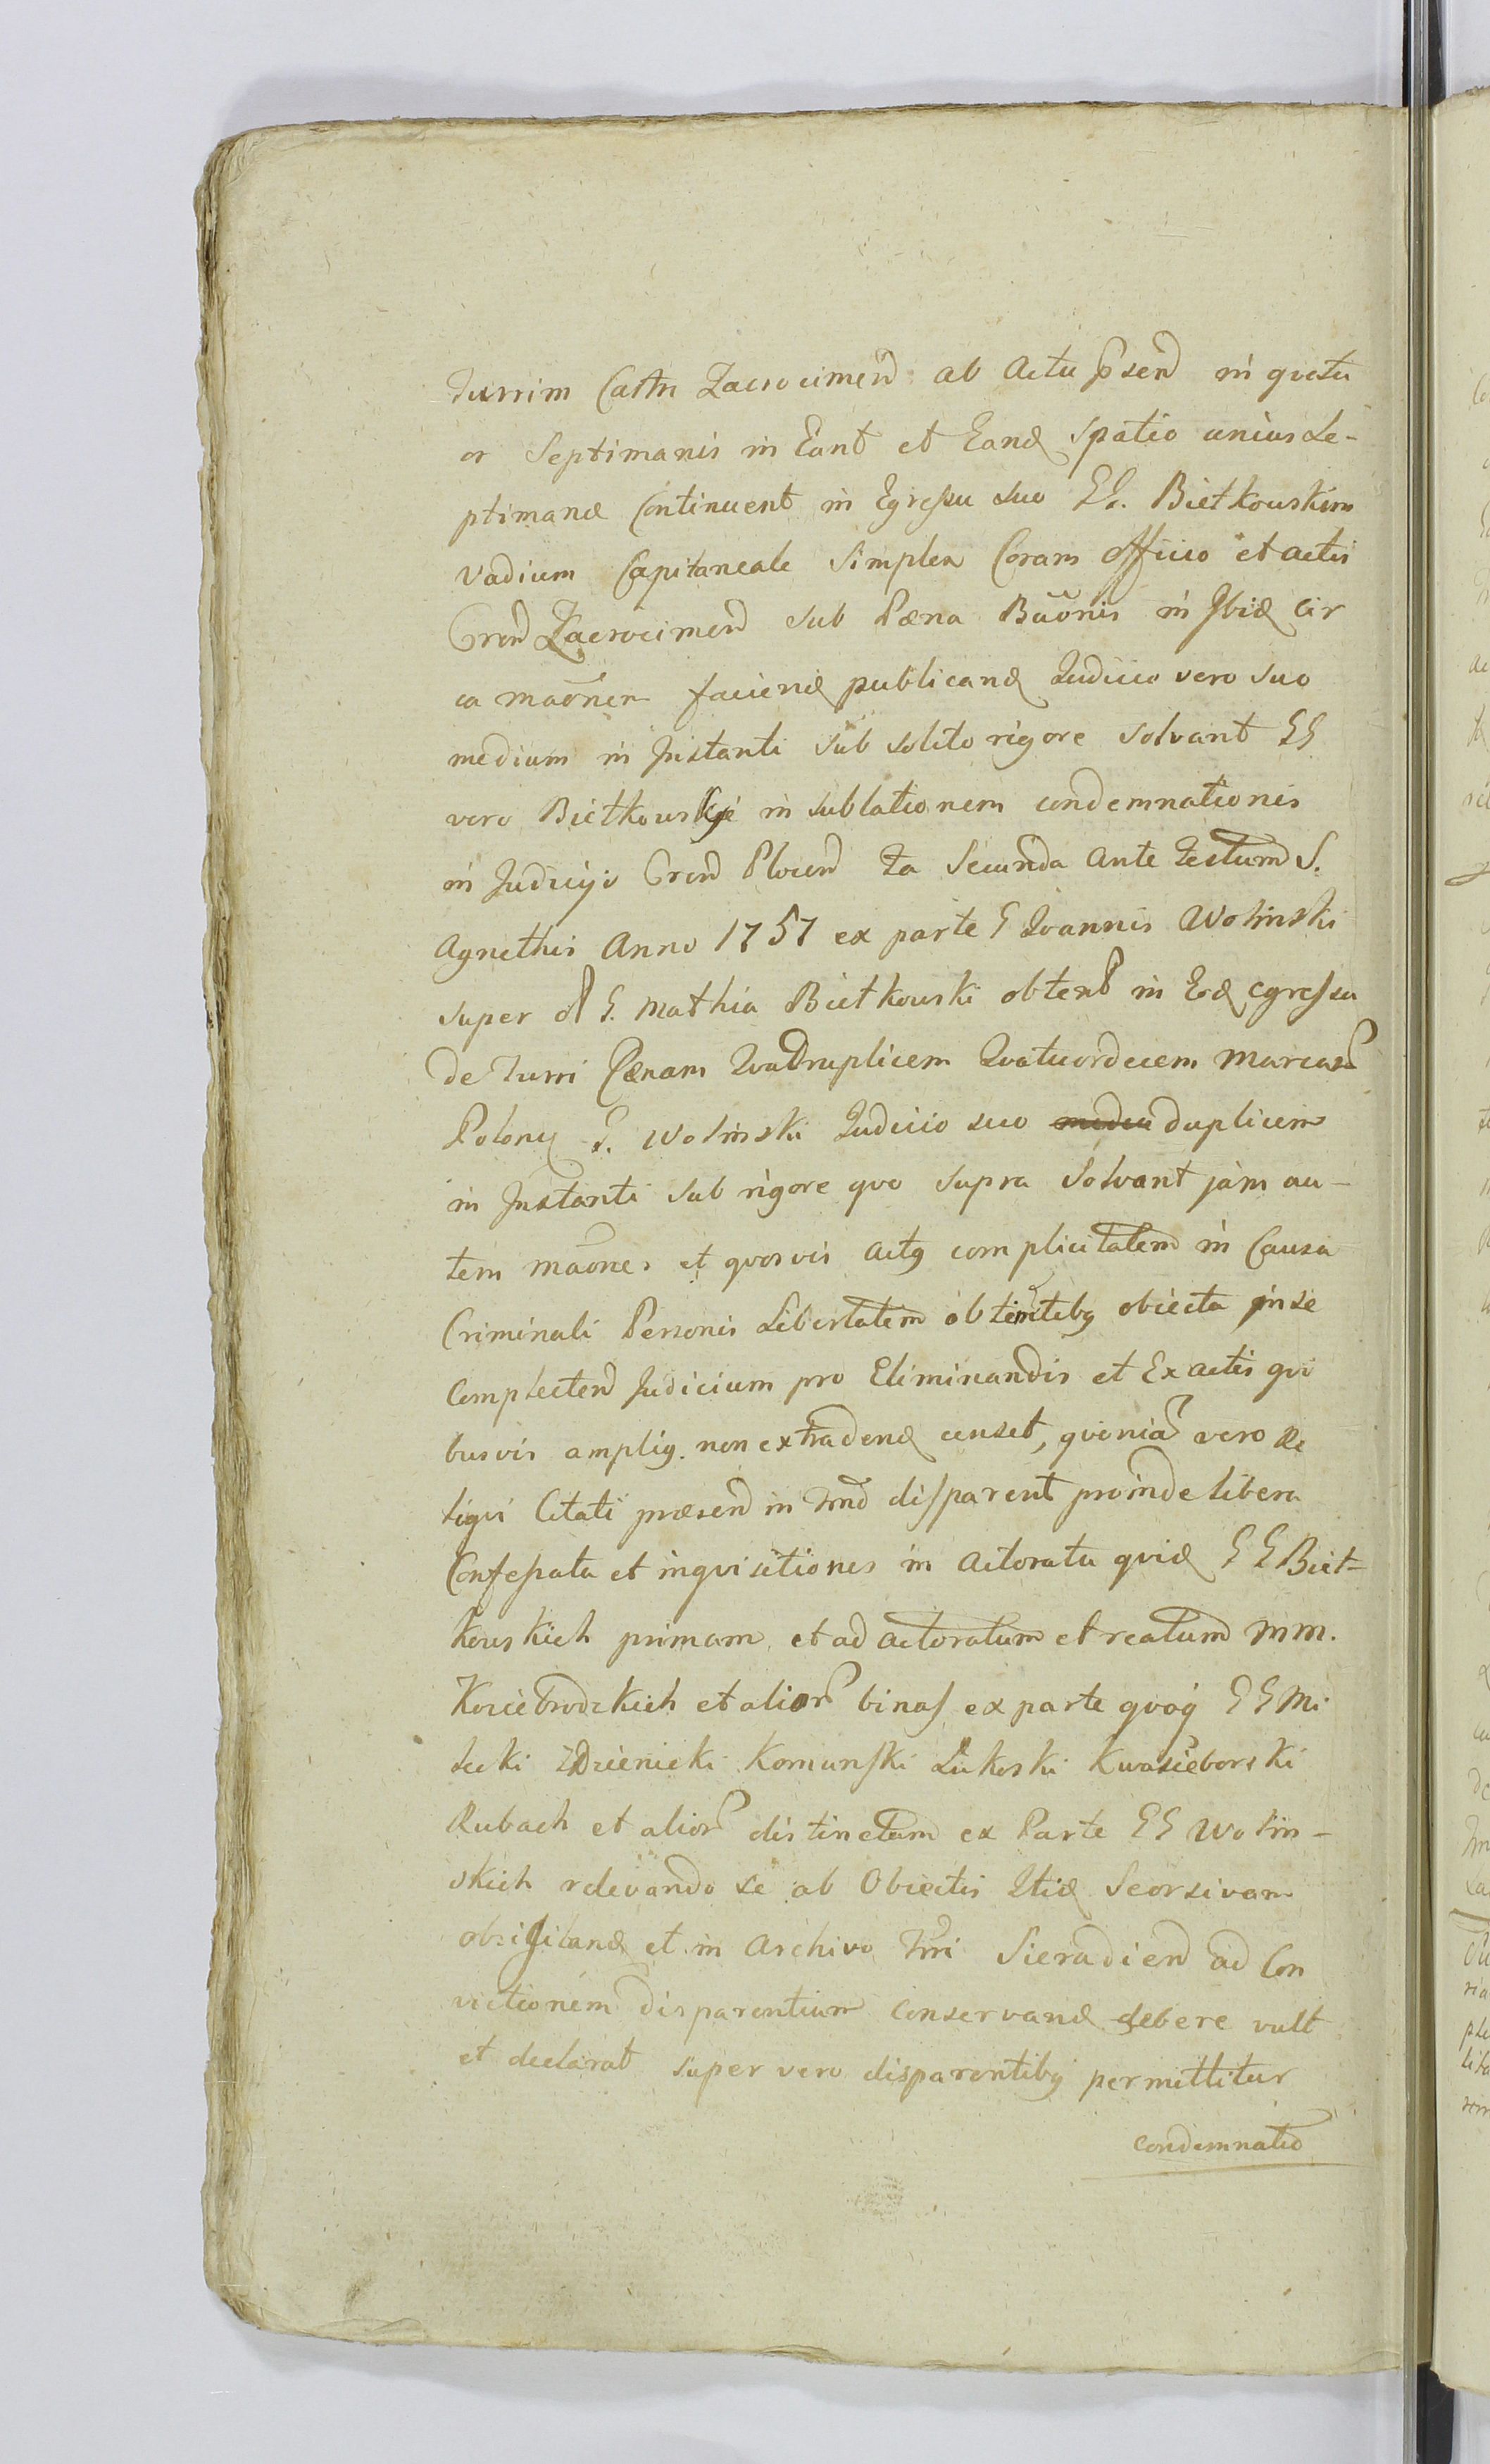 Turrim Castri Zacrocimen ab Actu psen in qvatu
or Septimanis in Eant et Eand spatio unius Se-
ptimanæ Continuent in Egressu suo GG. Bietkowskim
vadium Capitaneale Simplex Coram Officio et actis
Gren Zacrocimen sub Pæna Bãõnis in Ibid cir
ca mãõnem faciend publicand Judicio vero suo
medium in Instanti sub solito rigore solvant GG
vero Bietkowscÿ in sublationem condemnationis
in Judicijs Gren Plocen Fa Secunda Ante Festum S.
Agnethis Anno 1757 ex parte G Joannis Wolinski
super G. Mathia Bietkowski obtent in Eod egressu
de Turri Pænam Qvadruplicem Qvatuordecem Marcar
Polony G. Wolinski Judicio suo duplicem
in Instanti sub rigore qvo supra Solvant jam au-
tem mãõnes et qvosvis actg complicitatem in Causa
Criminali Personis Libertatem obtentibg obiecta in se
Complecten Judicium pro Eliminandis et Ex actis qvi
busvis amplig. non extradend censet, qvonia vero Re
liqvi Citati præsen in Tmo disparent proinde libera
Confessata et inqvisitiones in Actoratu qvid GG Biet-
kowskich primam et ad actoratum et reatum MM.
Kosciebrodzkich et alior binas ex parte qvoq GG Mi
lecki Zdzienicki Komunski Lukoski Kwasieborski
Rubach et alior distinctam ex Parte GG Wolin-
skich relevando se ab Obiectis Itid Seorsivam
obsigiland et in Archivo Tmi Sieradien ad Con
victionem disparentium Conservand debere vult
et declarat super vero disparentibg permittitur
condemnatio